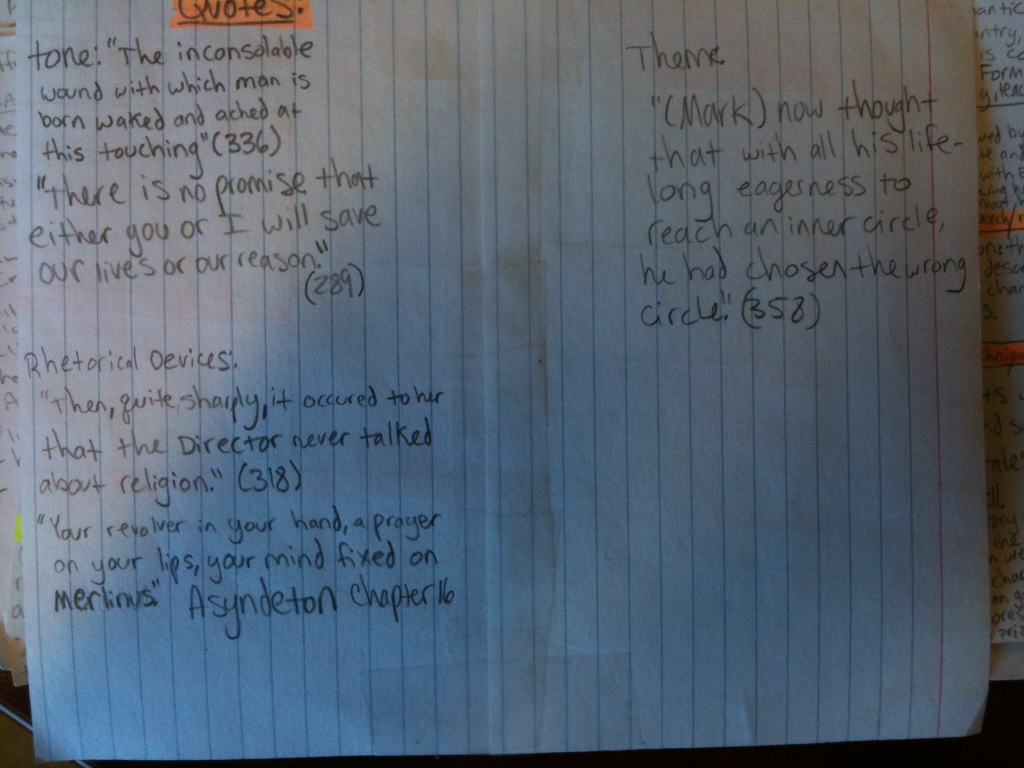 Quotes:
tone: "The inconsolable
wound with which man is
born waked and ached at
this touching" (336)
"There is no promise that
either you or I will save
our lives or our reason."
(289)
Rhetorical Devices:
"Then, quite sharply, it occured to her
that the Director never talked
about religion." (318)
"Your revolver in your hand, a prayer
on your lips, your mind fixed on
merlinus." Asyndeton Chapter 16
Theme
"(Mark) now thought
that with all his life-
long eagerness to
reach an inner circle,
he had chosen the wrong
circle." (358)